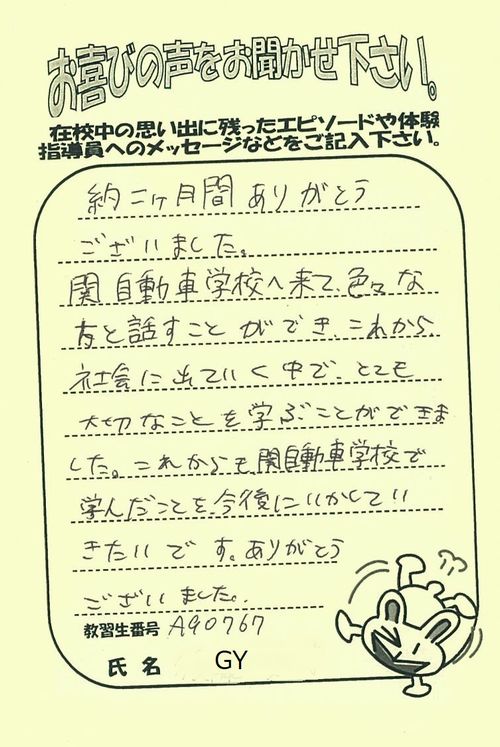 お喜びの声をお聞かせ下さい。
在校中の思い出に残ったエピソードや体験
指導員へのメッセージなどをご記入下さい。
約二ヶ月間ありがとう
ございました。
関自動車学校へ来て、色々な
方と話すことができ、これから
社会に出ていく中で、とても
大切なことを学ぶことができま
した。これからも関自動車学校で
学んだことを今後にいかしてい
きたいです。ありがとう
ございました。
教習生番号 A90767
氏名 GY